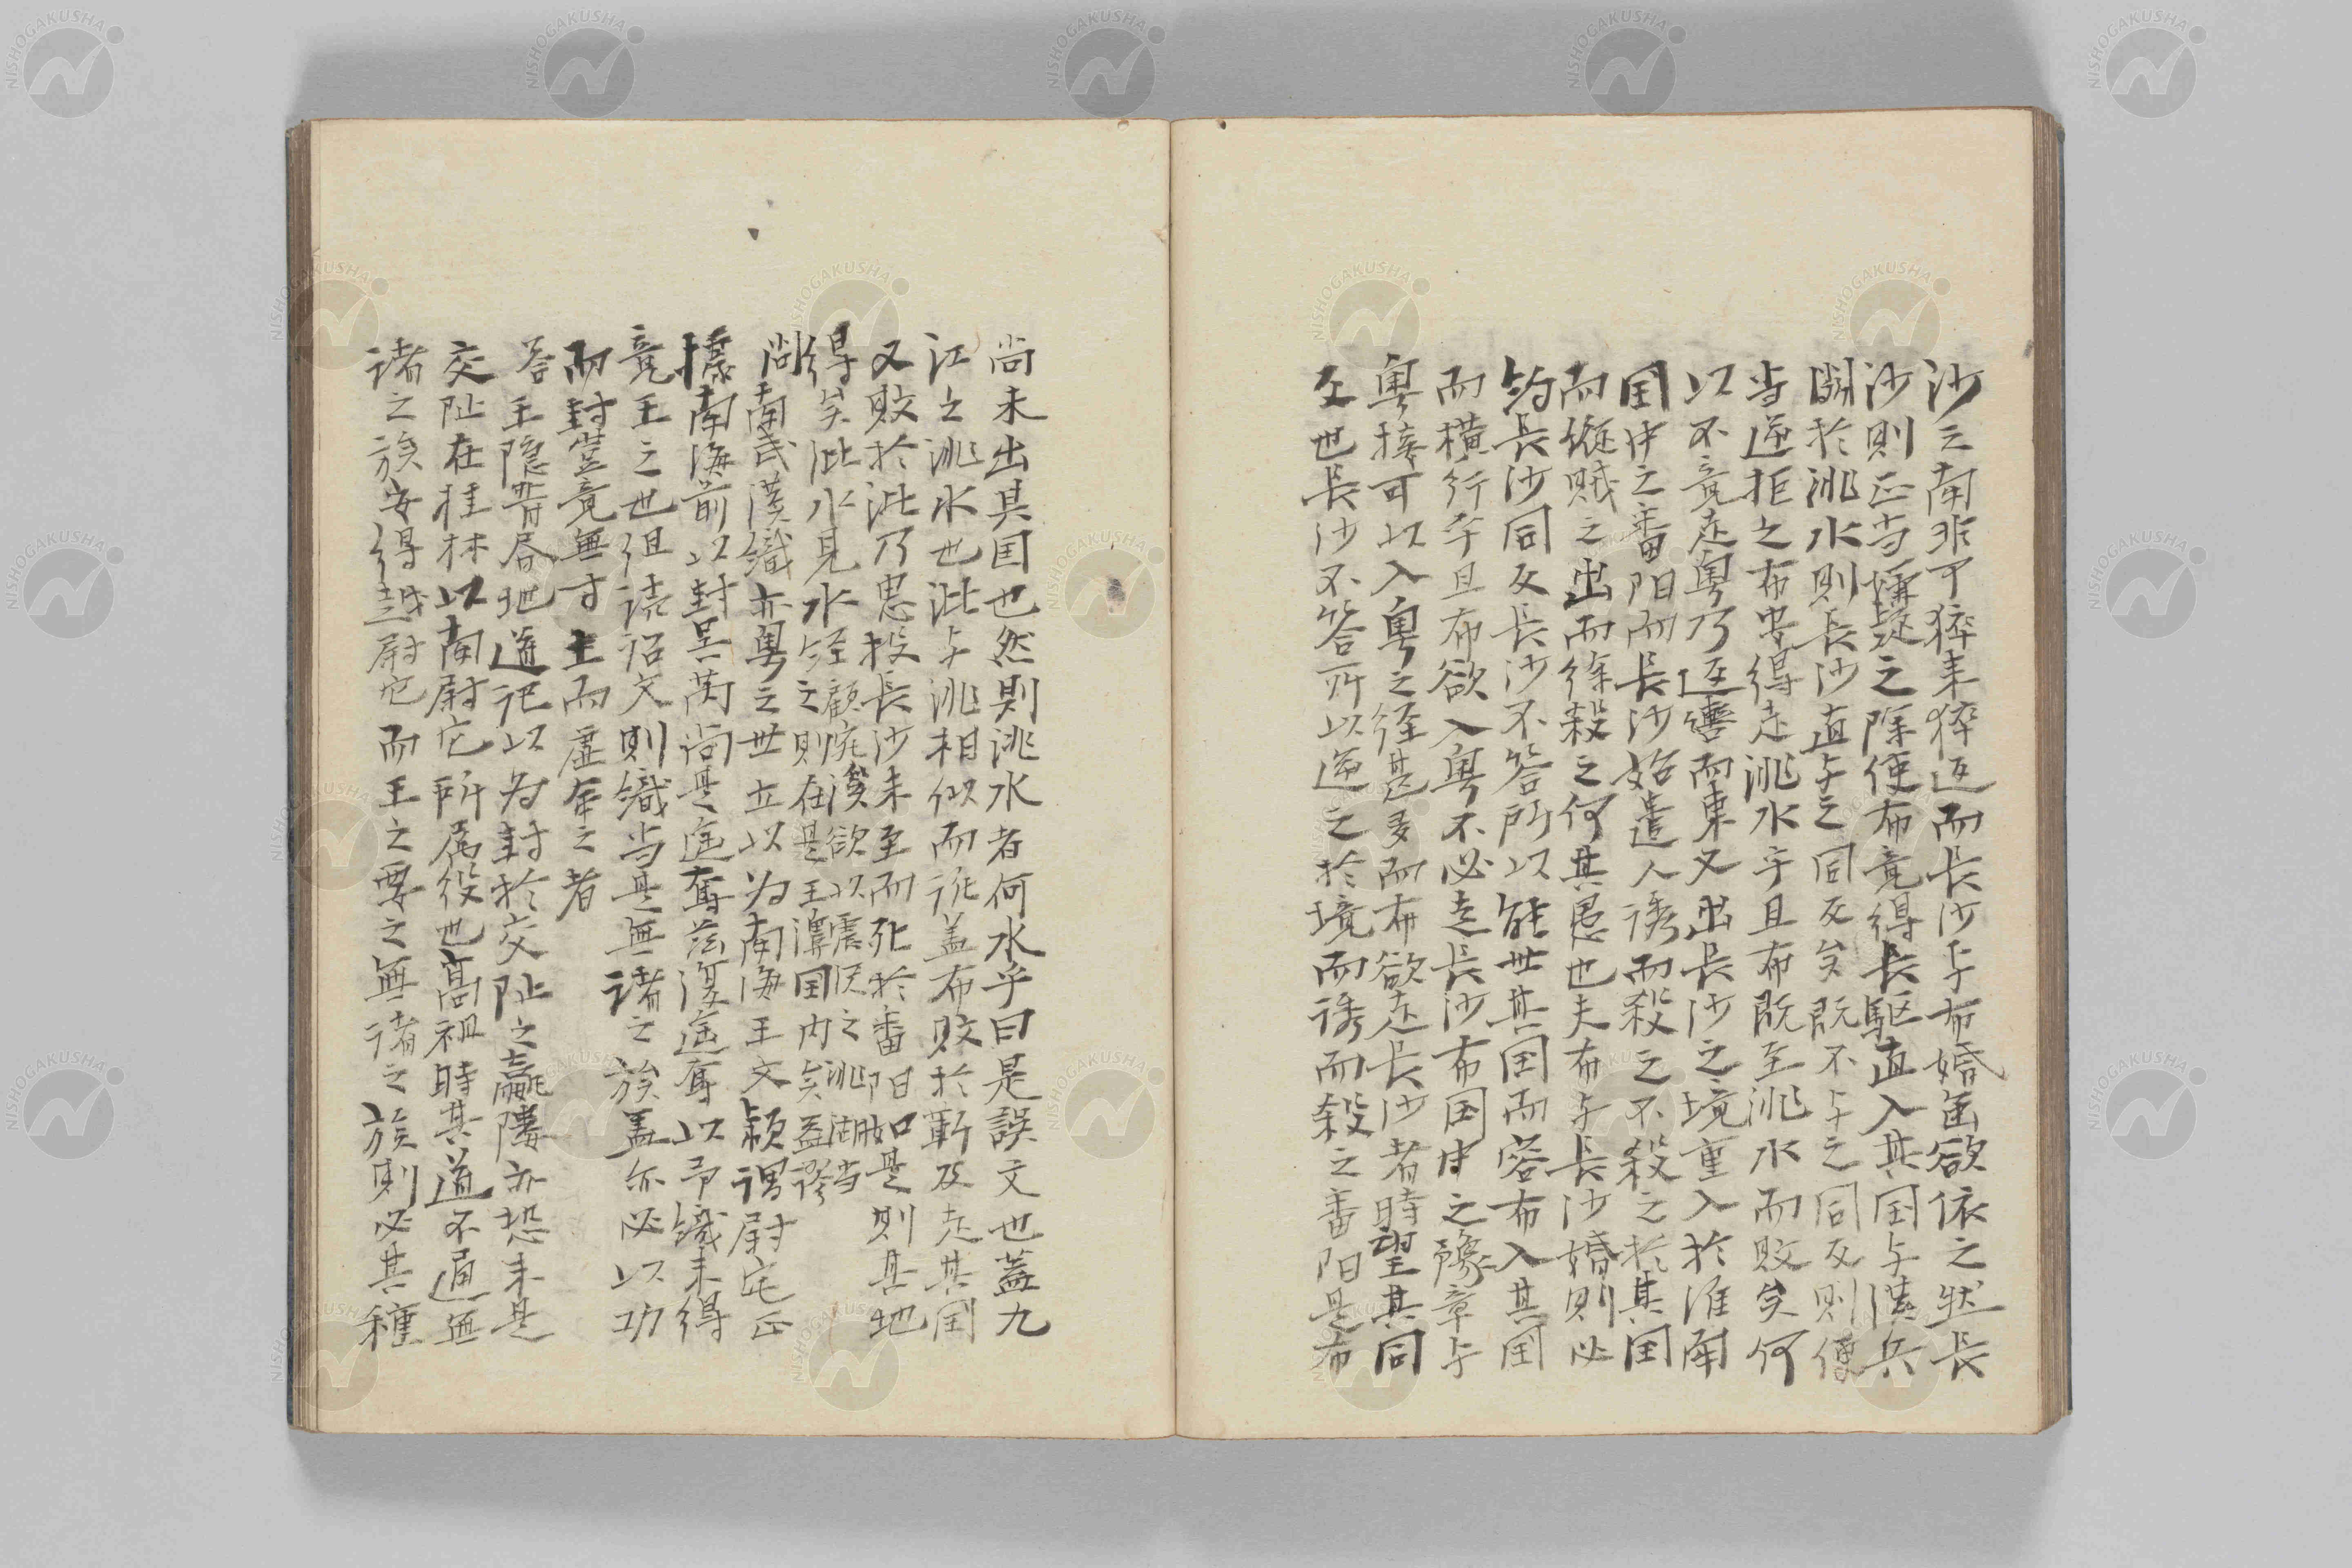 沙之南非可猝来猝返而長沙与布婚固欲依之然長
沙則正当嬬之除使布竟得長駆直入其国与漢兵
闘於洮水則長沙直与之同反矣既不与之同反則便
当逆拒之布安得走洮水乎且布既至洮水而敗矣何
以不竟走粤乃返轡而東又出長沙之境重入於淮南
国中之番陽而長沙始遣人誘而殺之不殺之於其国
而縦賊之出而徐殺之何其愚也夫布与長沙婚則必
約長沙同反長沙不答所以能世其国而容布入其国
而横行乎且布欲入粤不必走長沙布国中之豫章与
粤接可以入粤之径甚多而布欲走長沙者時望其同
反也長沙不答所以逆之於境而誘而殺之番陽是布
尚未出其国也然則洮水者何水乎曰是誤文也蓋九
江之洮水也沘与洮相似而訛蓋布敗於蘄及走其国
又敗於沘乃思投長沙未至而死於番陽如是則其地
得矣沘水見水経之顧宛溪欲以震沢之洮湖当
之則在呉王濞国内矣益謬
尚南武漢織亦粤之世立以為南海王文穎謂尉佗正
拠南海前以封呉芮尚是遥奪茲復遥奪以予織未得
竟王之也但読詔文則織当是無諸之族蓋亦必以功
而封豈竟無寸土而虚奉之者
答王隠晋居地道記以為封於交阯之羸𨻻亦恐未是
交阯在桂林以南尉佗所属役也高祖時其道不通無
諸之族安得越尉佗而王之要之無諸之族則必其種